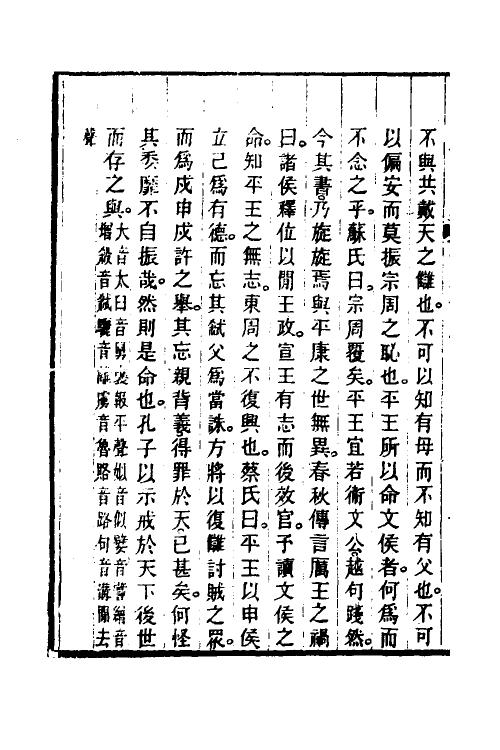 不與共戴天之讎也不可以知有母而不知有父也不可
以偏安而莫振宗周之恥也平王所以命文侯者何爲而
不念之乎蘇氏曰宗周覆矣平王宜若衞文公越句踐然
今其書乃旋旋焉與平康之世無異春秋傳言厲王之禍
曰諸侯釋位以閒王政宣王有志而後效官予讀文侯之
命知平王之無志東周之不復興也蔡氏曰平王以申侯
立己爲有德而忘其弑父爲當誅方將以復讎討賊之衆
而爲戍申戍許之舉其忘親背義得罪於天已甚矣何怪
其委靡不自振哉然則是命也孔子以示戒於天下後世
而存之與大音太臼音舅褒報平聲姒音似嬖音嘗繒音
增 音弑 音 虜音魯路音路句音溝閒去
聲